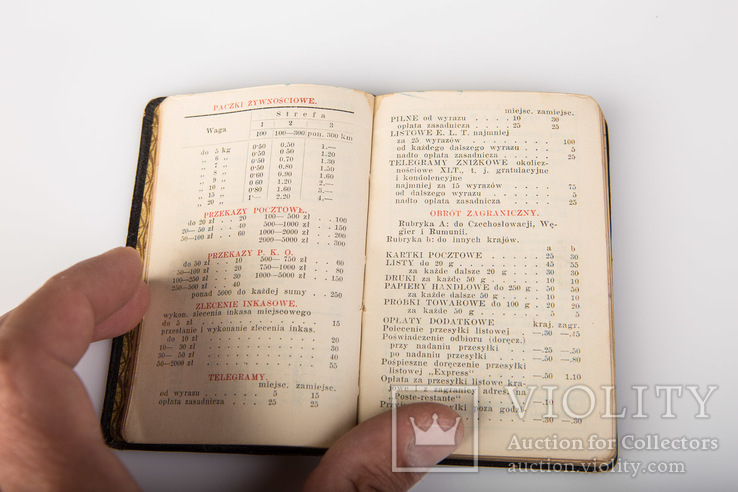 PACZKI ŻYWNOŚCIOWE.
Waga
Strefa
1 2 3
100 100—300 pon. 300 km
do 5 kg 0·50 0.50 1.—
„ 6 „ 0·50 0.50 1.20
„ 7 „ 0·50 0.70 1.30
„ 8 „ 0·50 0.80 1.50
„ 9 „ 0·60 0.90 1.60
„ 10 „ 0·60 1.20 2.—
„ 15 „ 0·80 1.60 3.—
„ 20 „ 1.— 2.20 4.—
PRZEKAZY POCZTOWE.
do 20 zł . . 20 100— 500 zł . . . 100
20— 50 zł . . 40 500—1000 zł . . . 150
50—100 zł . . 60 1000—2000 zł . . . 200
2000—5000 zł . . . 300
PRZEKAZY P. K. O.
do 50 zł . . . 10 500— 750 zł . . . 60
50—100 zł . . 20 750—1000 zł . . . 80
100—250 zł . . 30 1000—5000 zł . . . 150
250—500 zł . . 40
ponad 5000 do każdej sumy . . 250
ZLECENIE INKASOWE.
wykon. zlecenia inkasa miejscowego
do 5 zł . . . . . . . . 15
przesłanie i wykonanie zlecenia inkas.
do 10 zł . . . . . . . . 20
10— 30 zł . . . . . . . . 30
30— 50 zł . . . . . . . . 40
50—2000 zł . . . . . . . . 55
TELEGRAMY.
miejsc. zamiejsc.
od wyrazu . . . . . 5 15
opłata zasadnicza . . . 25 25
miejsc. zamiejsc.
PILNE od wyrazu . . . . 10 30
opłata zasadnicza . . . 25 25
LISTOWE E. L. T. najmniej
za 25 wyrazów . . . . . . 100
od każdego dalszego wyrazu . . . 5
nadto opłata zasadnicza . . . 25
TELEGRAMY ZNIŻKOWE okolicz-
nościowe XLT., t. j. gratulacyjne
i kondolencyjne
najmniej za 15 wyrazów . . . 75
od dalszego wyrazu . . . . 5
nadto opłata zasadnicza . . . 25
OBRÓT ZAGRANICZNY.
Rubryka A: do Czechosłowacji, Wę-
gier i Rumunii.
Rubryka b: do innych krajów.
a b
KARTKI POCZTOWE . . . . 25 30
LISTY do 20 g . . . . . 45 55
za każde dalsze 20 g . . . 30 30
DRUKI za każde 50 g . . . 10 10
PAPIERY HANDLOWE do 250 g . 50 50
za każde dalsze 50 g . . . 10 10
PRÓBKI TOWAROWE do 100 g . 20 20
za każde 50 g . . . . . 5 5
OPŁATY DODATKOWE kraj. zagr.
Polecenie przesyłki listowej . —.30 —.45
Poświadczenie odbioru (doręcz.)
przy nadaniu przesyłki . . —.25 —.50
po nadaniu przesyłki . . . —.50 —.80
Pospieszne doręczenie przesyłki
listowej „Express" . . . —.50 1.10
Opłata za przesyłki listowe kra-
jowe i z zagranicy adres. na
„Poste-restante" . . —.10
poza godz.
—.30 —.30
VIOLITY
Auction for Collectors
auction.violity.com